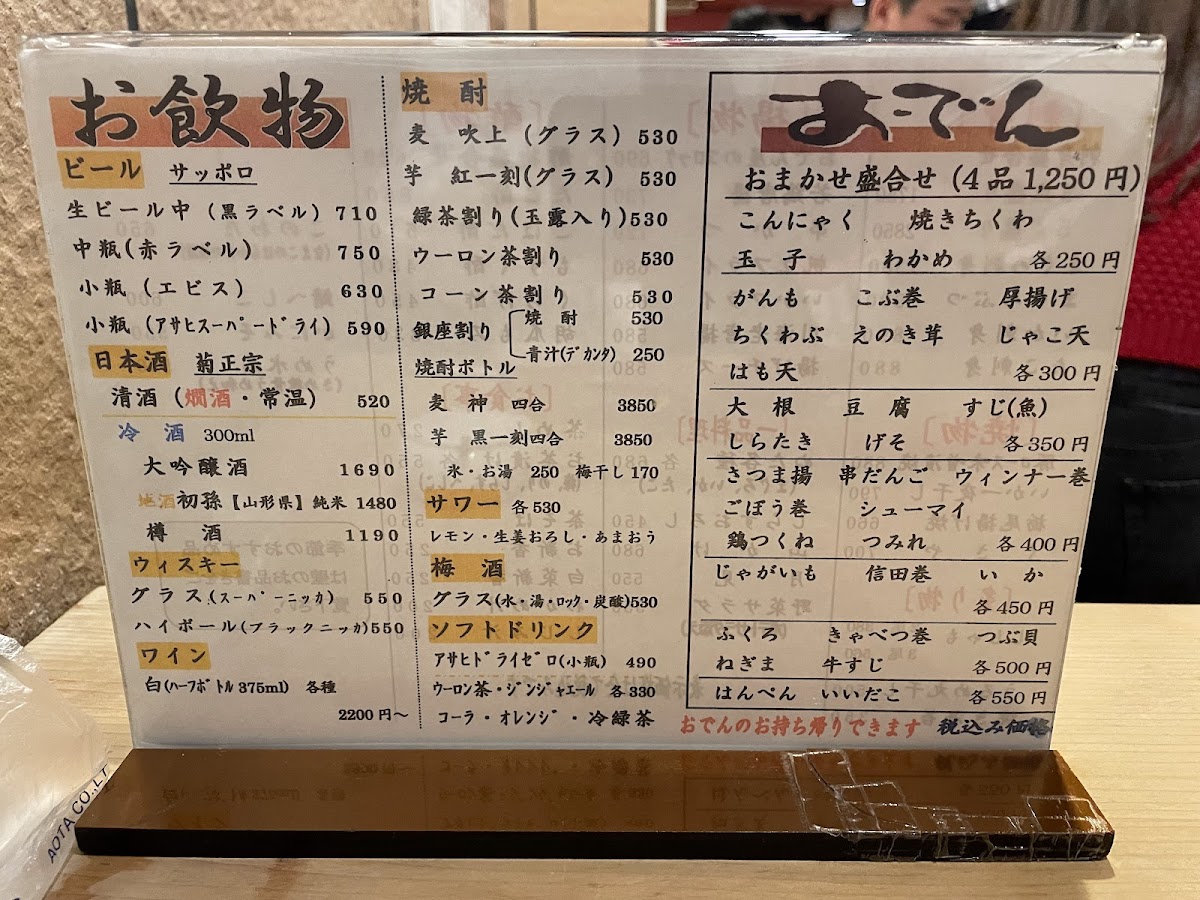 お飲物
ビール サッポロ
生ビール中(黒ラベル) 710
中瓶(赤ラベル) 750
小瓶(エビス) 630
小瓶(アサヒスーパードライ) 590
日本酒 菊正宗
清酒(燗酒・常温) 520
冷酒 300ml
大吟醸酒 1690
地酒初孫【山形県】純米 1480
樽酒 1190
ウィスキー
グラス(スーパーニッカ) 550
ハイボール(ブラックニッカ)550
ワイン
白(ハーフボトル375ml) 各種
2200円〜
焼酎
麦 吹上(グラス) 530
芋 紅一刻(グラス) 530
緑茶割り(玉露入り)530
ウーロン茶割り 530
コーン茶割り 530
銀座割り 焼酎 530
青汁(デカンタ) 250
焼酎ボトル
麦 神 四合 3850
芋 黒一刻四合 3850
氷・お湯 250 梅干し170
サワー 各530
レモン・生姜おろし・あまおう
梅酒
グラス(水・湯・ロック・炭酸)530
ソフトドリンク
アサヒドライゼロ(小瓶) 490
ウーロン茶・ジンジャエール 各330
コーラ・オレンジ・冷緑茶
おでん
おまかせ盛合せ(4品1,250円)
こんにゃく 焼きちくわ
玉子 わかめ 各250円
がんも こぶ巻 厚揚げ
ちくわぶ えのき茸 じゃこ天
はも天 各300円
大根 豆腐 すじ(魚)
しらたき げそ 各350円
さつま揚 串だんご ウィンナー巻
ごぼう巻 シューマイ
鶏つくね つみれ 各400円
じゃがいも 信田巻 いか
各450円
ふくろ きゃべつ巻 つぶ貝
ねぎま 牛すじ 各500円
はんぺん いいだこ 各550円
おでんのお持ち帰りできます 税込み価格
AOTA CO.,LT